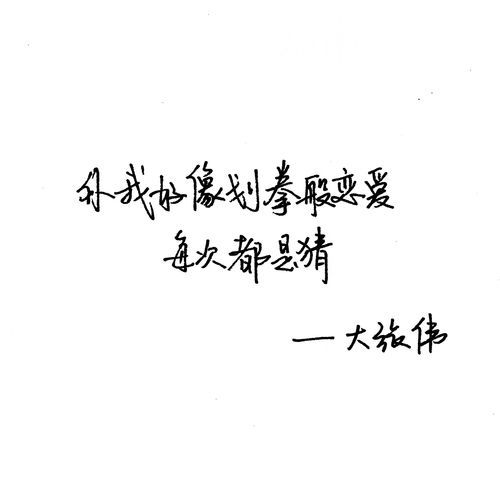 你我好像划拳般恋爱
每次都是猜
—大张伟